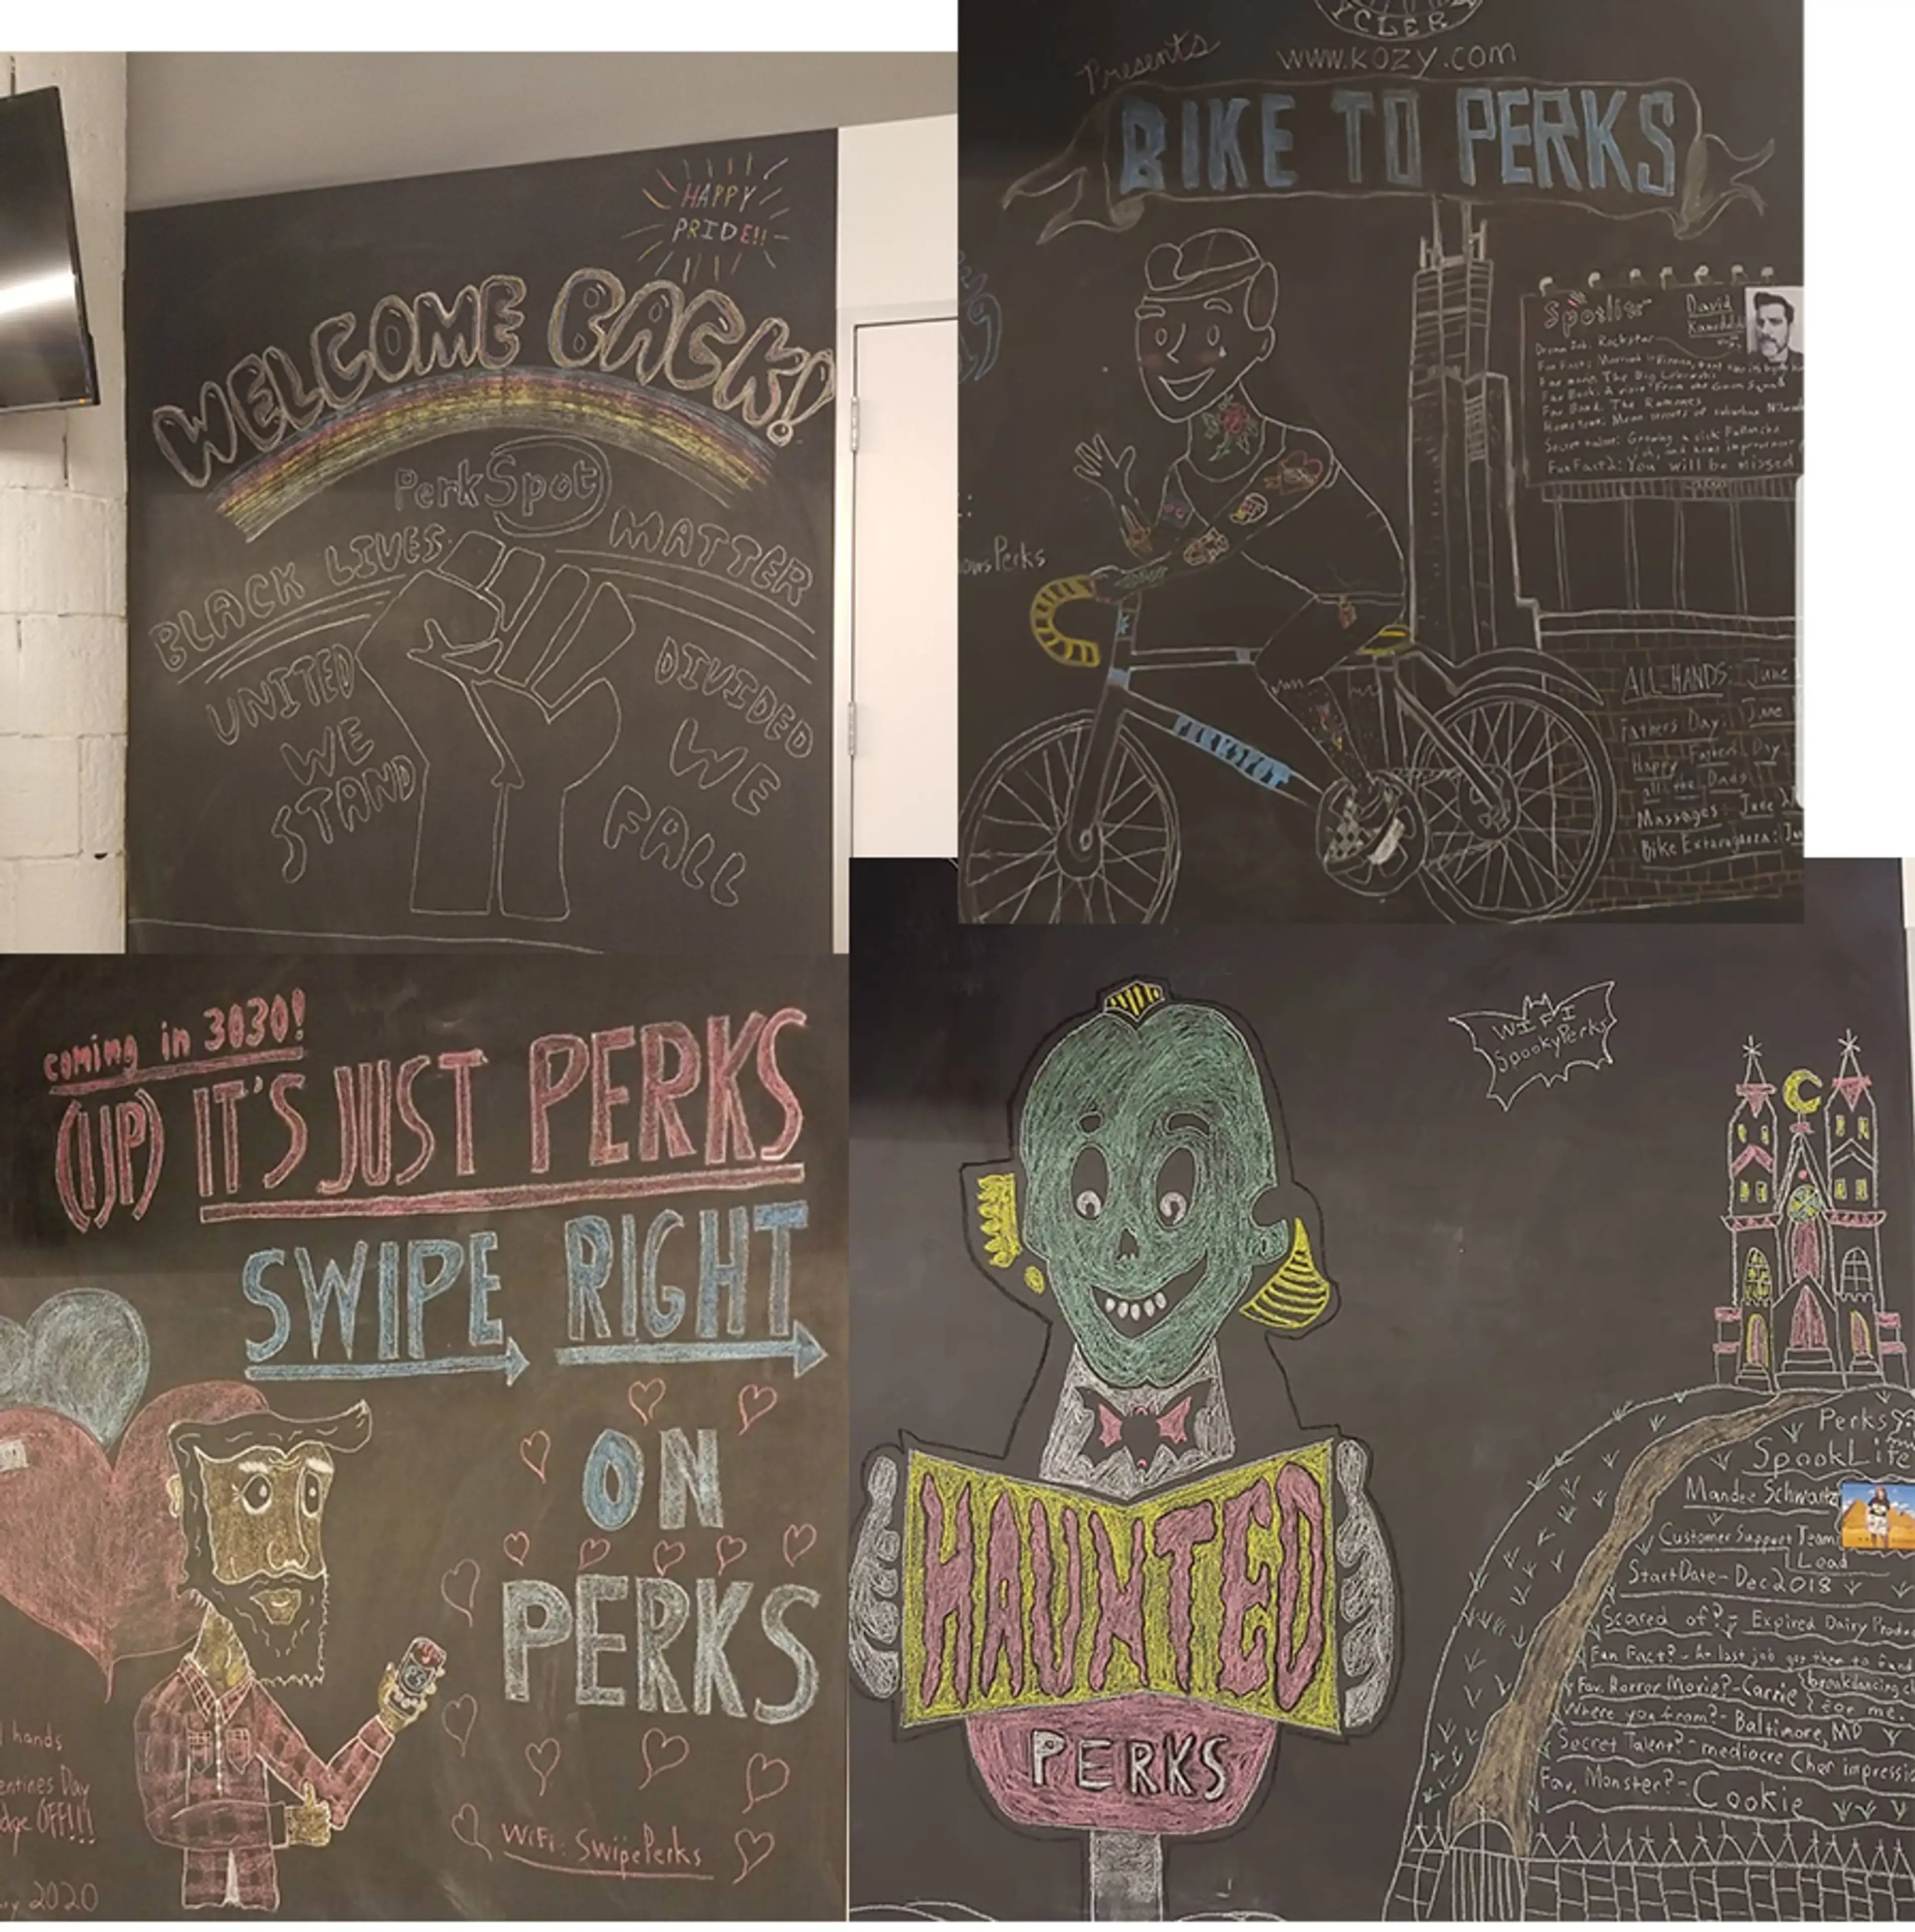 HAPPY
PRIDE!!
WELCOME BACK!
PerkSpot
BLACK LIVES MATTER
UNITED
WE
STAND
DIVIDED
WE
FALL
YCLER
www.kozy.com
Presents
BIKE TO PERKS
owsPerks
PERKSPOT
David
Dream Job: Rockstar
Fav Movie: The Big Lebowski
Fav Band: The Ramones
Fun Fact 2: You will be missed
ALL-HANDS: June
Fathers Day: June
Happy Fathers Day
all the Dads
Massages: June
Bike Extravaganza: Ju
coming in 3030!
(IJP) IT'S JUST PERKS
SWIPE RIGHT
ON
PERKS
hands
entines Day
dge OFF!!!
ry 2020
WiFi: SwipePerks
WIFI
SpookyPerks
HAUNTED
PERKS
Perks
SpookLite
Mandee Schwartz
Customer Support Team
Lead
Start Date - Dec 2018
Scared of? - Expired Dairy Produ
Fun Fact? - At last job got them to fund
breakdancing cl
Fav. Horror Movie? - Carrie for me.
Where you from? - Baltimore, MD
Secret Talent? - mediocre Cher impressio
Fav. Monster? - Cookie